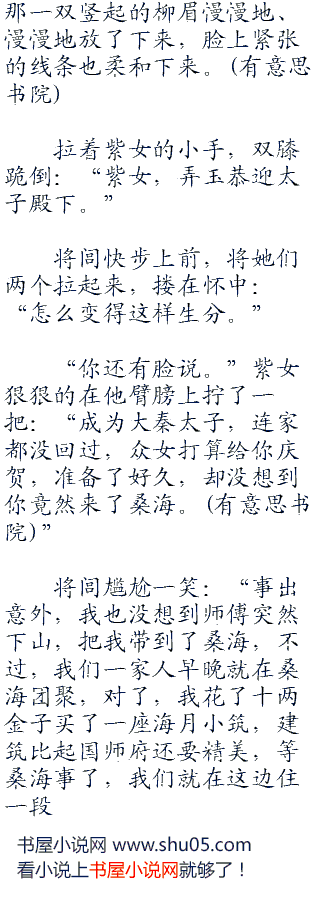 那一双竖起的柳眉慢慢地、
慢慢地放了下来，脸上紧张
的线条也柔和下来。(有意思
书院)
拉着紫女的小手，双膝
跪倒：“紫女，弄玉恭迎太
子殿下。”
将闾快步上前，将她们
两个拉起来，搂在怀中：
“怎么变得这样生分。”
“你还有脸说。”紫女
狠狠的在他臂膀上拧了一
把：“成为大秦太子，连家
都没回过，众女打算给你庆
贺，准备了好久，却没想到
你竟然来了桑海。(有意思书
院)”
将闾尴尬一笑：“事出
意外，我也没想到师傅突然
下山，把我带到了桑海，不
过，我们一家人早晚就在桑
海团聚，对了，我花了十两
金子买了一座海月小筑，建
筑比起国师府还要精美，等
桑海事了，我们就在这边住
一段
书屋小说网 www.shu05.com
看小说上书屋小说网就够了！